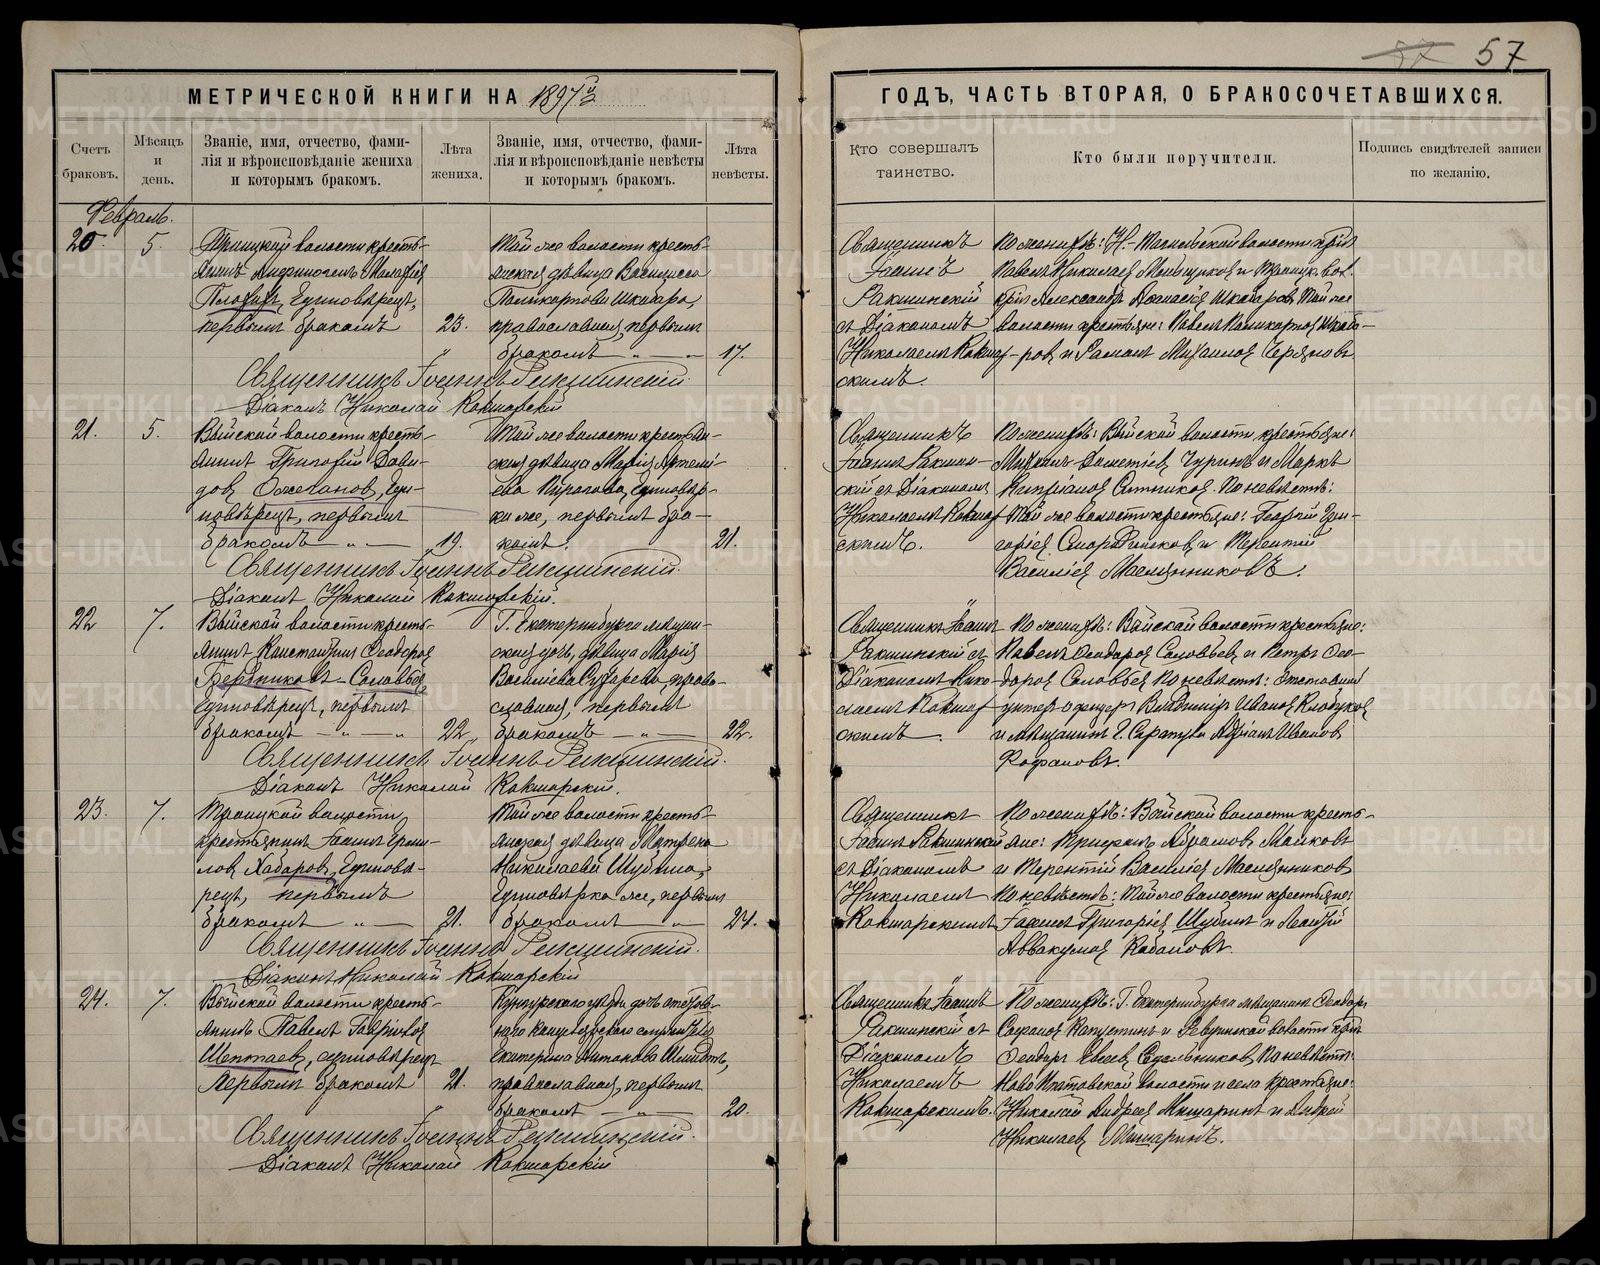 57 57
МЕТРИЧЕСКОЙ КНИГИ НА 1897й
ГОДЪ, ЧАСТЬ ВТОРАЯ, О БРАКОСОЧЕТАВШИХСЯ.
Счетъ браковъ.
Мѣсяцъ и день.
Званіе, имя, отчество, фами-
лія и вѣроисповѣданіе жениха
и которымъ бракомъ.
Лѣта жениха.
Званіе, имя, отчество, фами-
лія и вѣроисповѣданіе невѣсты
и которымъ бракомъ.
Лѣта невѣсты.
Кто совершалъ
таинство.
Кто были поручители.
Подпись свидѣтелей записи
по желанію.
Февраль.
20. 5.
Троицкой волости кресть-
первымъ бракомъ 23.
Той же волости кресть-
янская дѣвица Василисса
Поликарпова
православная, первымъ
бракомъ 17.
Священникъ
Іоаннъ
Ракшинскій
съ Діакономъ
Николаемъ Кокшар-
скимъ.
Павелъ Николаев
волости крестьяне: Павелъ Поликарпов
Священникъ Іоаннъ Ракшинскій.
Діаконъ Николай Кокшарскій
21. 5.
Выйской волости кресть-
янинъ Григорій Дави-
дов Ожеганов, Еди-
новѣрецъ, первымъ
бракомъ 19.
Той же волости крестьян-
ская дѣвица Марія Артемі-
ева Пирогова, единовѣр-
ка же, первымъ бра-
комъ. 21.
Священникъ
Іоаннъ Ракшин-
скій съ Діакономъ
Николаемъ Кокшар
скимъ.
По женихѣ: Выйской волости крестьяне:
Чуринъ и Маркъ
Ситников. По невѣстѣ:
Той же волости крестьяне: Георгій Гри-
горіев Смородинсков и Терентій
Василіев Маслянниковъ.
Священникъ Іоаннъ Ракшинскій.
Діаконъ Николай Кокшарскій.
22 7.
Выйской волости кресть-
янинъ Константинъ Ѳеодоров
Соловьев,
единовѣрецъ, первымъ
бракомъ 22.
Г. Екатеринбурга мѣщан-
ская дочь, дѣвица Марія
Василіева Сухарева, право-
славная, первымъ
бракомъ 22.
Священникъ Іоаннъ
Ракшинскій съ
Діакономъ Нико-
лаемъ Кокшар
скимъ.
По женихѣ: Выйской волости крестьяне:
Павелъ Ѳеодоров Соловьев и Петръ Ѳео-
доров Соловьев. По невѣстѣ: отставной
унтеръ-офицеръ Владиміръ Иванов
и мѣщанинъ Г. Сарапула Адріанъ Иванов
Фофановъ.
Священникъ Іоаннъ Ракшинскій.
Діаконъ Николай Кокшарскій.
23. 7.
Троицкой волости
крестьянинъ Іоаннъ Ерми-
лов Хабаров, Единовѣ-
рецъ, первымъ
бракомъ 21.
Той же волости кресть-
янская дѣвица Матрена
Николаева Шубина,
Единовѣрка же, первымъ
бракомъ 24.
Священникъ
Іоаннъ Ракшинскій
съ Діакономъ
Николаемъ
Кокшарскимъ
По женихѣ: Выйской волости кресть-
яне: Абрамов Малковъ
и Терентій Василіев Маслянников
По невѣстѣ: той же волости крестьяне:
Іоаннъ Григоріев Шубинъ и Леонтій
Аввакумов Кабановъ.
Священникъ Іоаннъ Ракшинскій.
Діаконъ Николай Кокшарскій
24. 7.
Выйской волости кресть-
янинъ Павелъ Гавріилов
Шептаев, единовѣрецъ
Первымъ бракомъ 21.
Кунгурскаго уѣзда дочь
наго Канцелярскаго служителя
Екатерина Антонова Шмидтъ,
православная, первымъ
бракомъ 20.
Священникъ Іоаннъ
Ракшинскій съ
Діакономъ
Николаемъ
Кокшарскимъ.
По женихѣ: Г. Екатеринбурга мѣщанинъ Ѳеодоръ
Капустинъ и Ревдинской волости
Ѳеодоръ По невѣстѣ:
волости и села крестьяне:
Николай Андреев Мишаринъ и Андрей
Николаев Мишаринъ.
Священникъ Іоаннъ Ракшинскій.
Діаконъ Николай Кокшарскій
METRIKI.GASO-URAL.RU